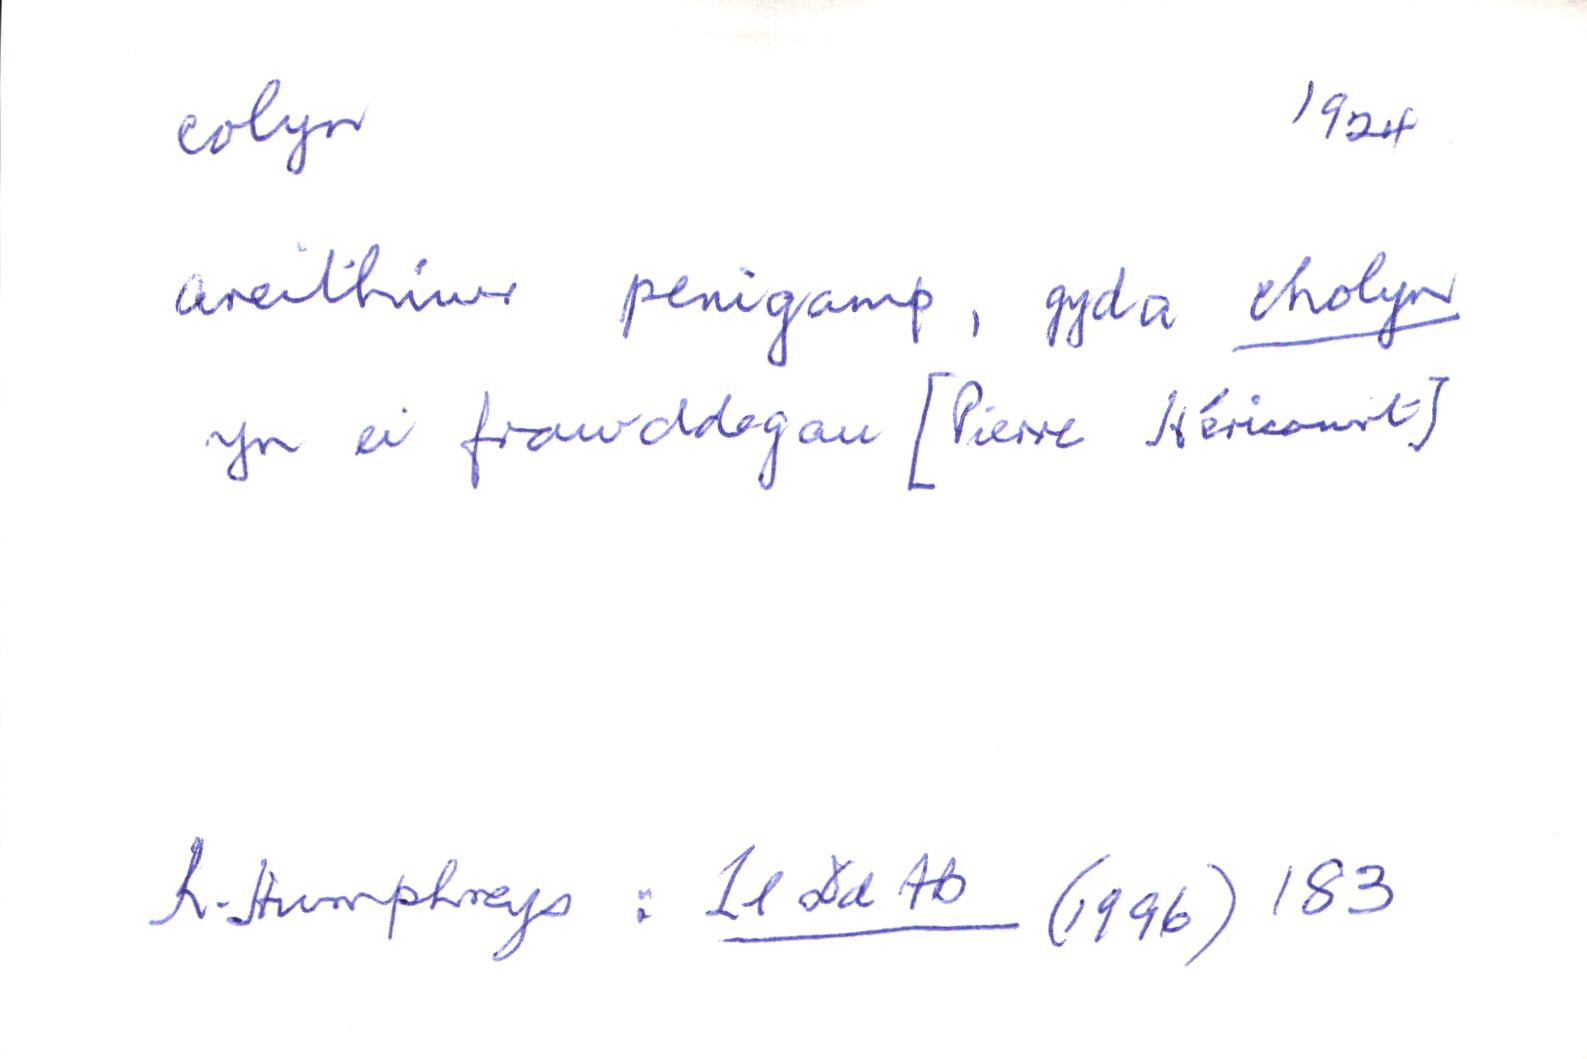 colyn 1924
areithiwr penigamp, gyda cholyn
yn ei frawddegau [Pierre Héricourt]
h. Humphreys : Ll Dd Ab (1996) 183